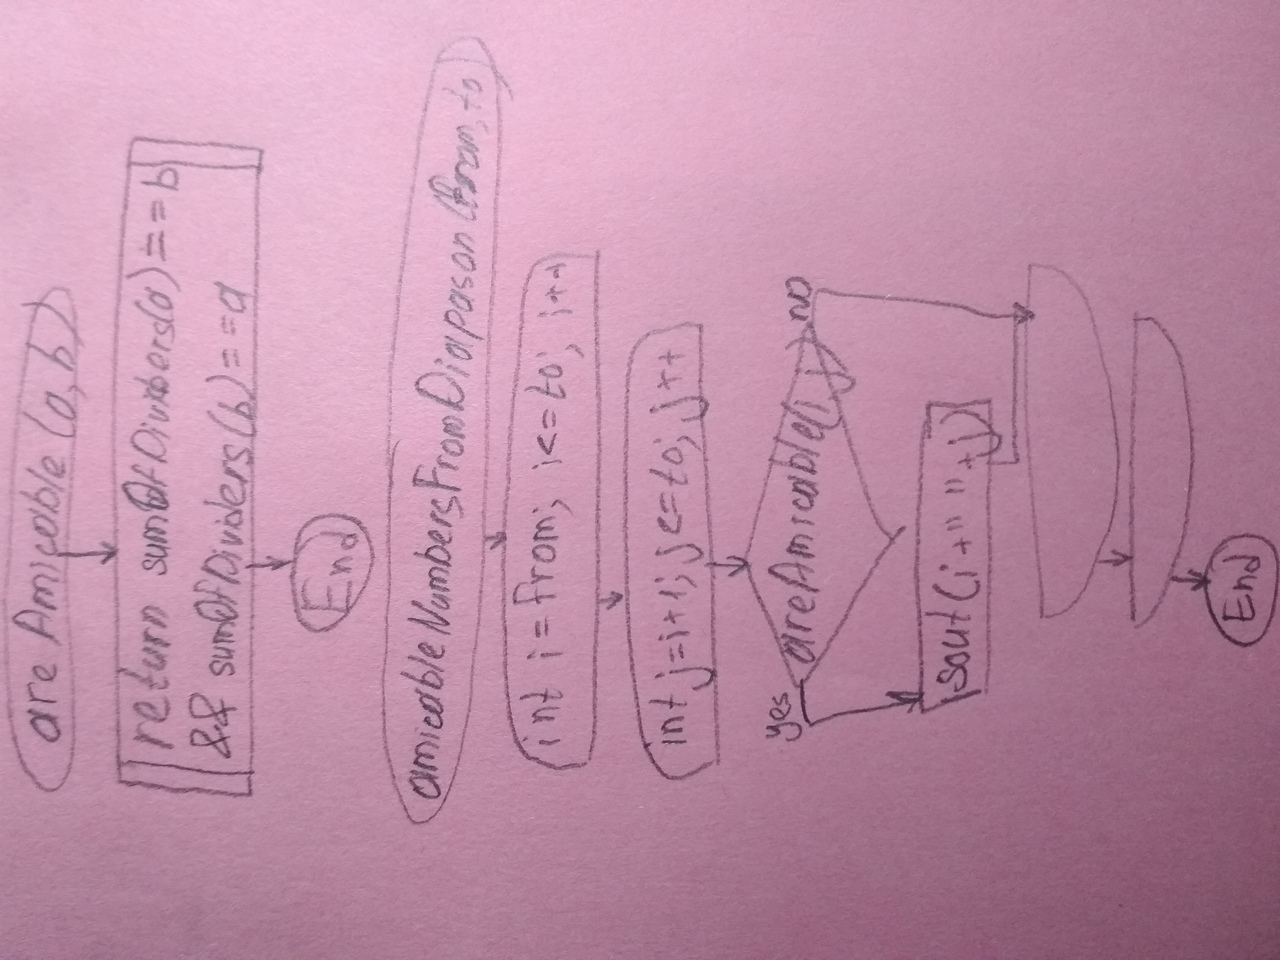 are Amicable (a, b)
return sumOfDividers(a) == b
&& sumOfDividers(b) == a
End
amicableNumbersFromDiapason (from, to
int i = from; i <= to; i++
int j = i+1; j <= to; j++
areAmicable(i, j)
yes
no
sout(i+" "+j)
End